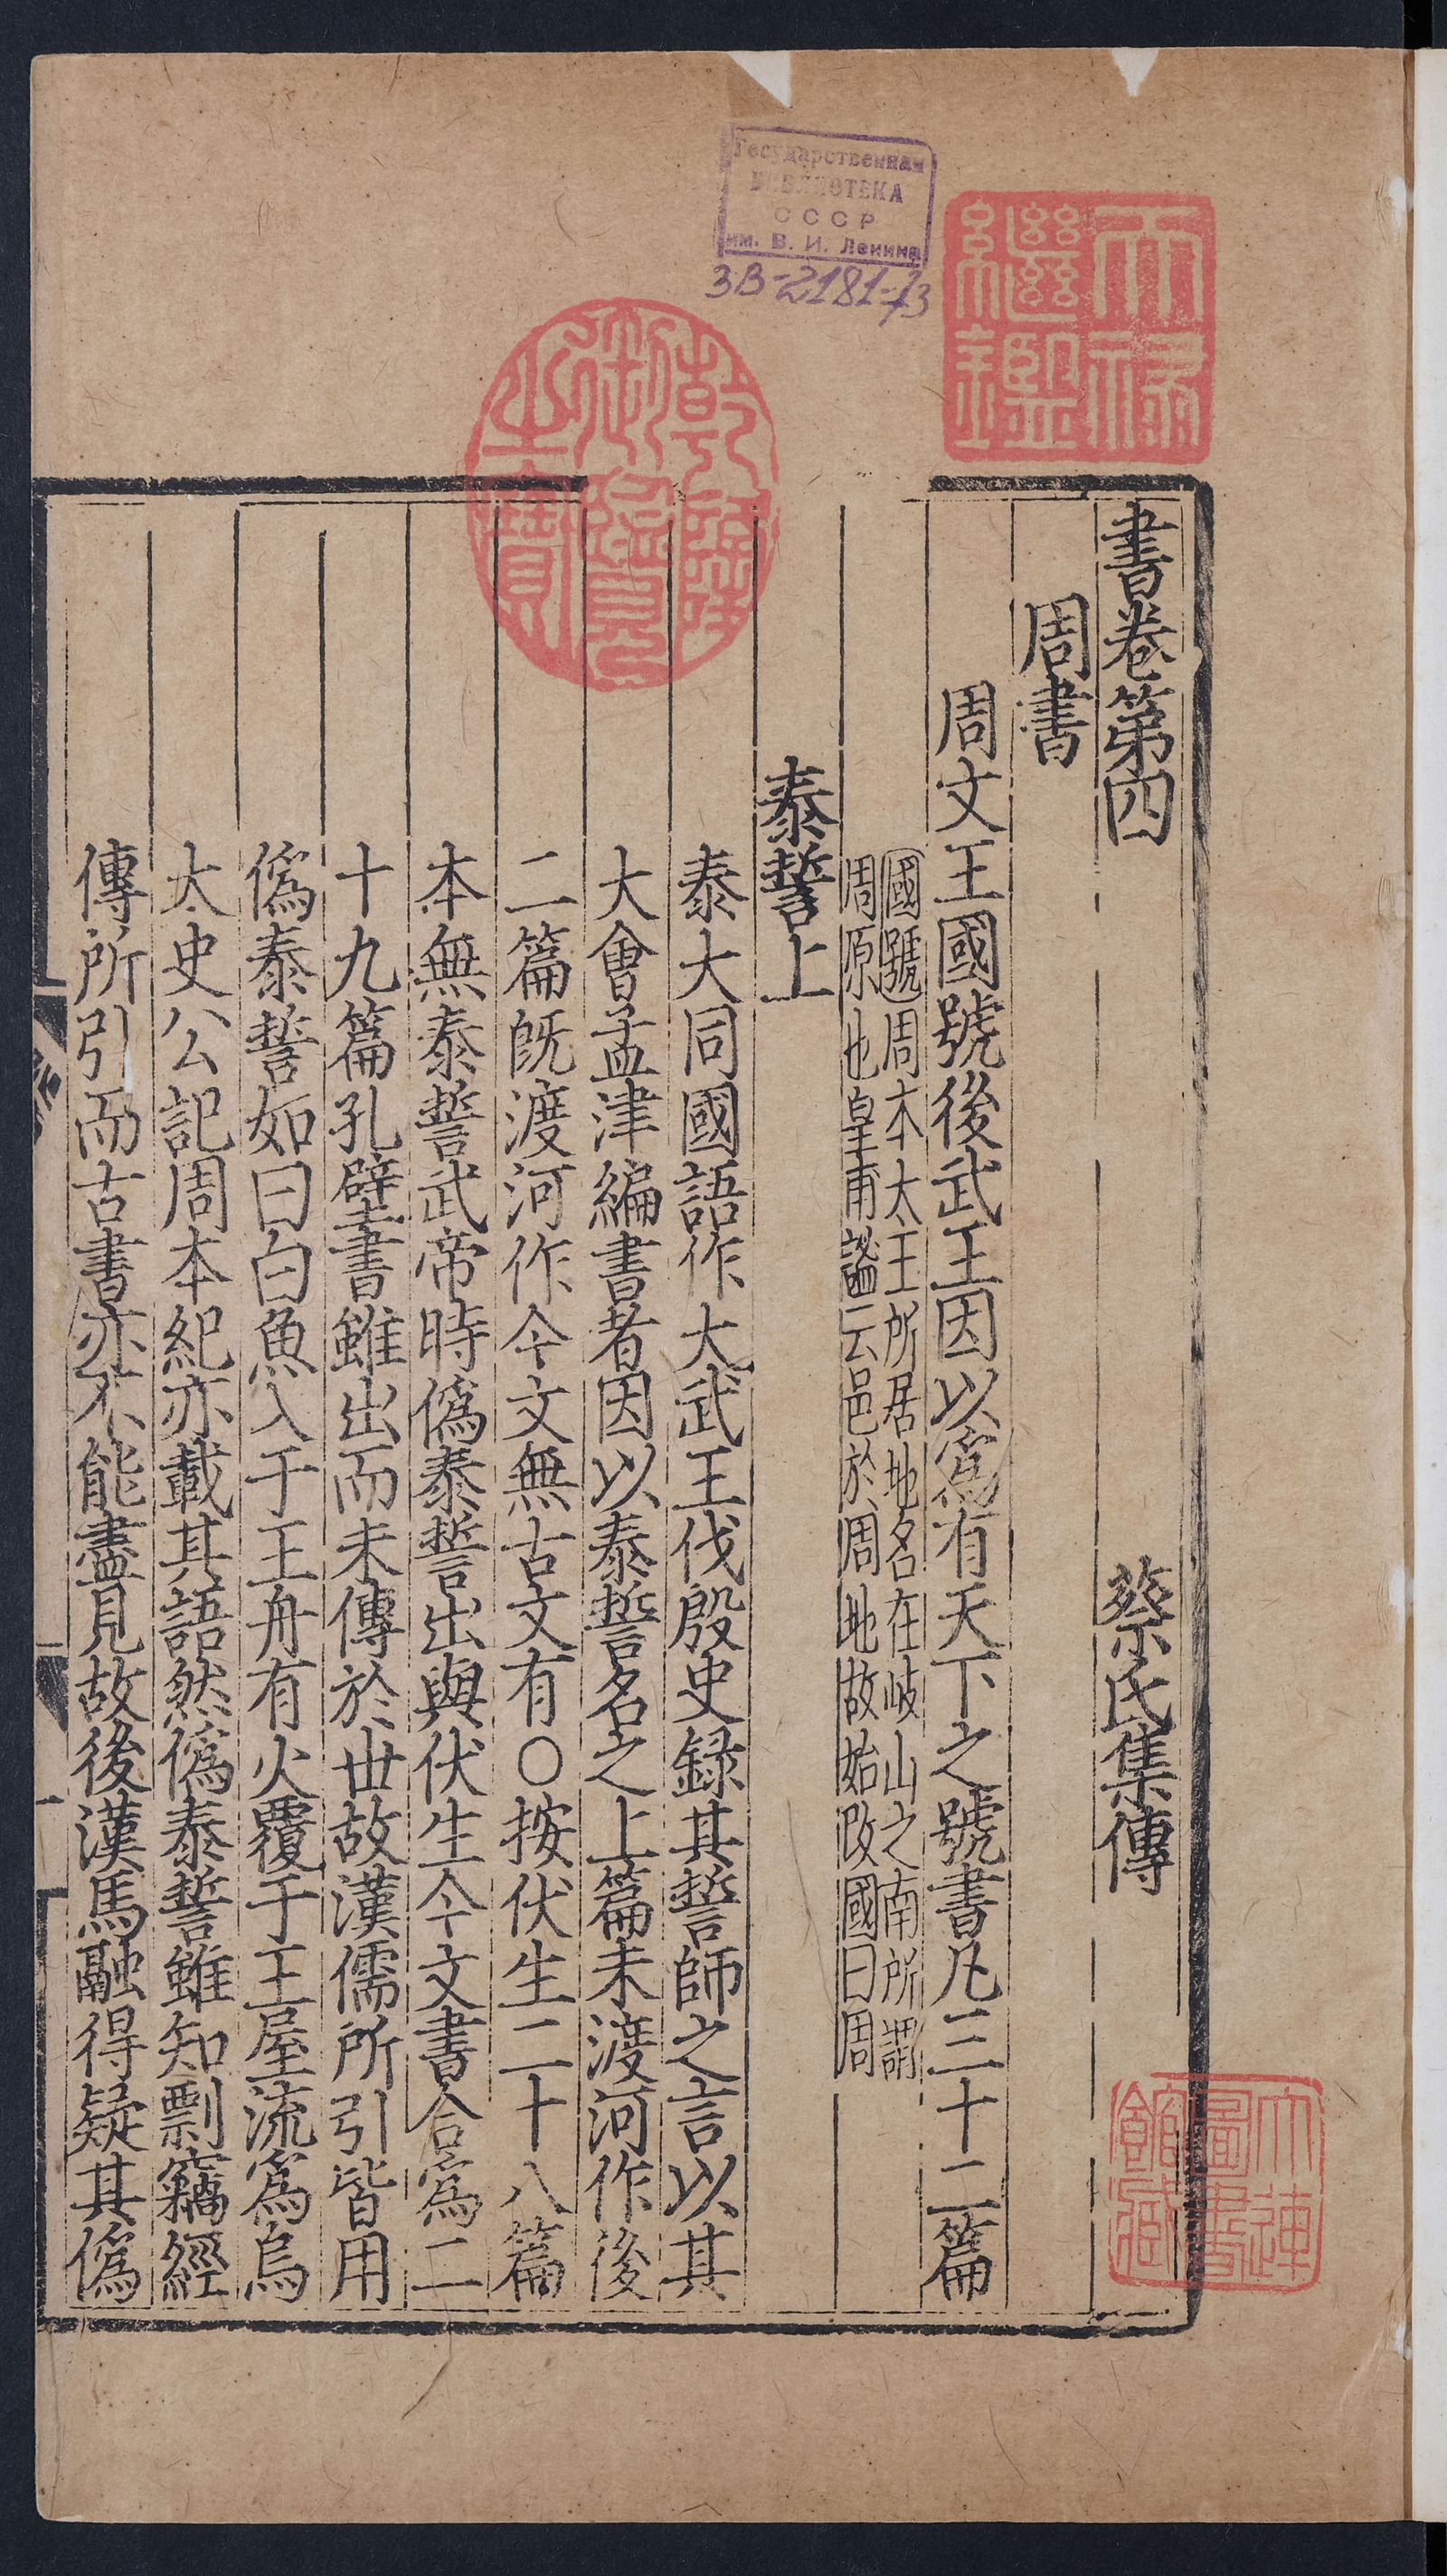 書卷第四 蔡氏集傳
周書
周文王國號後武王因以爲有天下之號書凡三十二篇
國號周本太王所居地名在岐山之南所謂
周原也皇甫謐云邑於周地故始改國曰周
泰誓上
泰大同國語作大武王伐殷史録其誓師之言以其
大會孟津編書者因以泰誓名之上篇未渡河作後
二篇既渡河作今文無古文有○按伏生二十八篇
本無泰誓武帝時僞泰誓出與伏生今文書合爲二
十九篇孔壁書雖出而未傳於世故漢儒所引皆用
僞泰誓如曰白魚入于王舟有火覆于王屋流爲烏
太史公記周本紀亦載其語然僞泰誓雖知剽竊經
傳所引而古書亦不能盡見故後漢馬融得疑其僞
Государственная
БИБЛИОТЕКА
СССР
им. В. И. Ленина
3В-2181-13
天祿
繼鑑
乾隆
御覽
之寶
大連
圖書
館藏